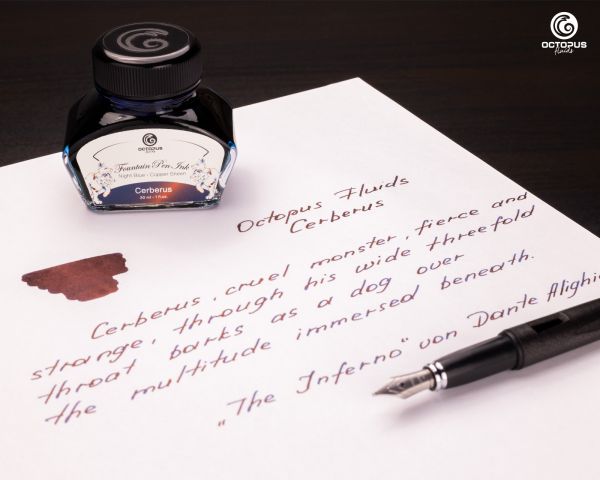 OCTOPUS
fluids
OCTOPUS
Fountain Pen Ink
Night Blue - Copper Sheen
Cerberus
30 ml - 1 fl.oz.
Octopus Fluids
Cerberus
Cerberus, cruel monster, fierce and
strange, through his wide threefold
throat barks as a dog over
the multitude immersed beneath.
„The Inferno“ von Dante Alighie